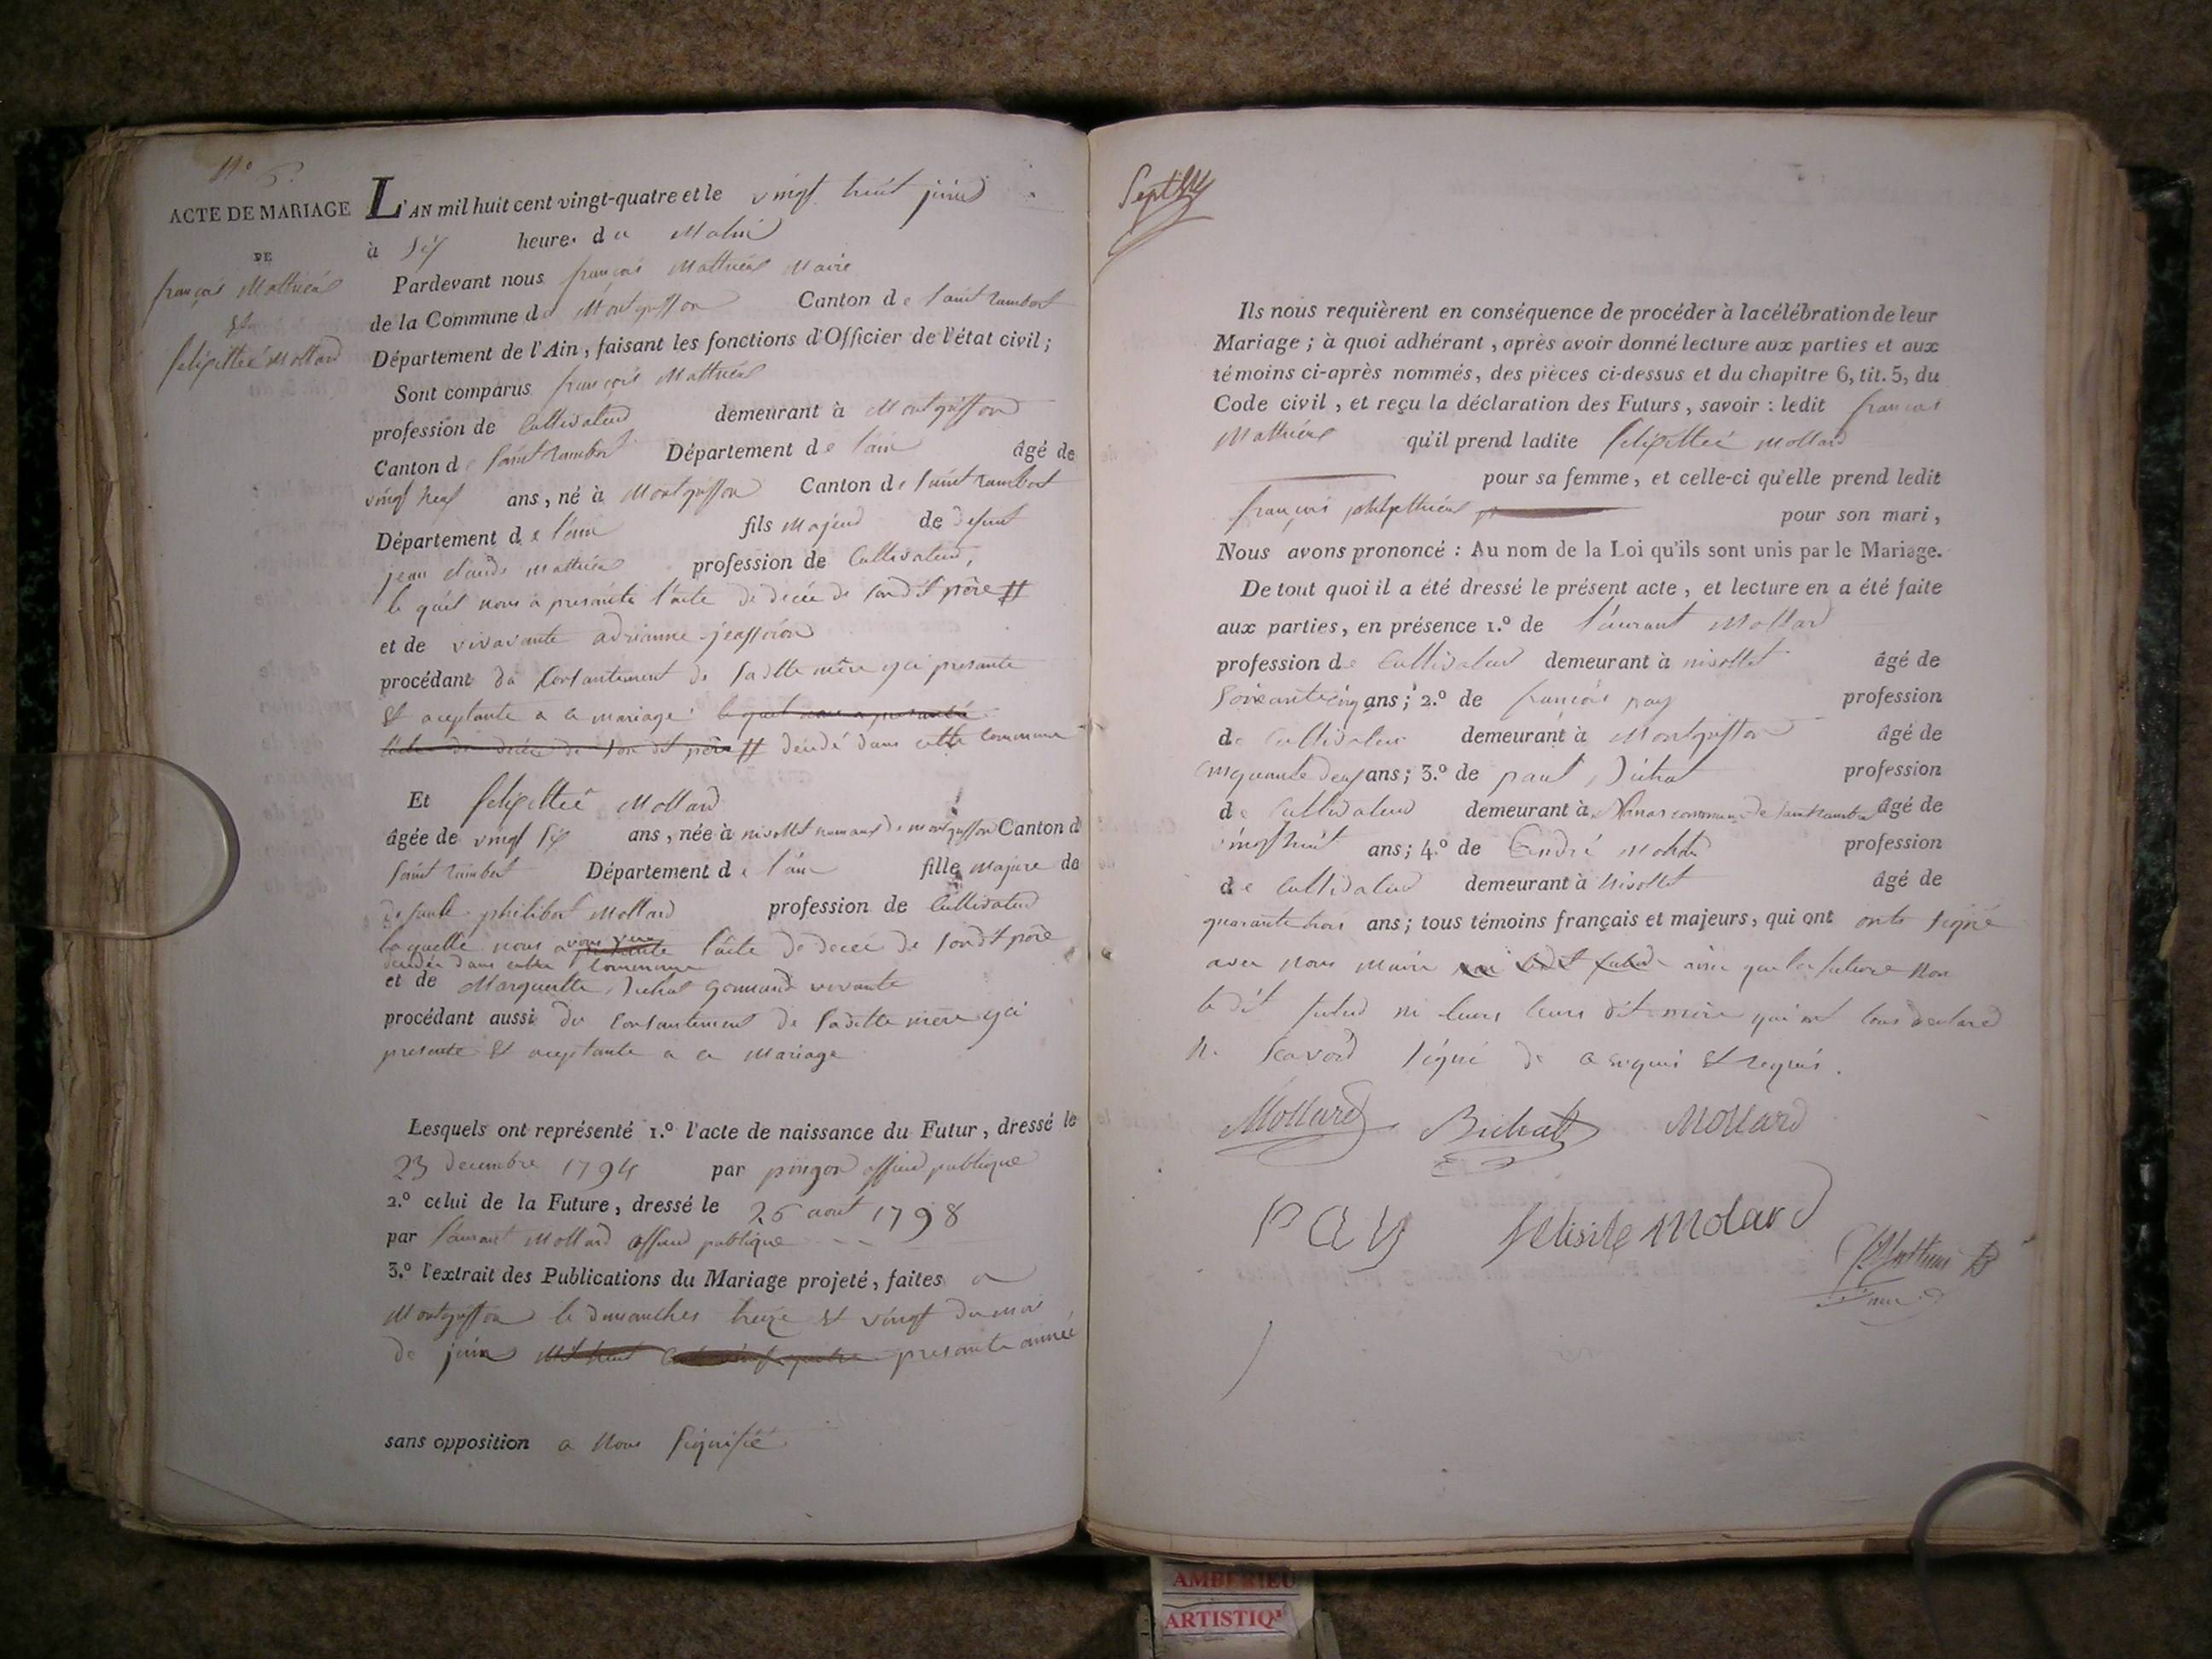 N.o 6
ACTE DE MARIAGE
DE
françois Mathieu
et
felixittée Mollard
L'AN mil huit cent vingt-quatre et le vingt huit juin
à six heures du Matin
Pardevant nous françois Mathieu Maire
de la Commune de Montgriffon Canton de Saint rambert
Département de l'Ain, faisant les fonctions d'Officier de l'état civil;
Sont comparus françois Mathieu
profession de Cultivateur demeurant à Montgriffon
Canton de Saint rambert Département de l'ain âgé de
vingt neuf ans, né à Montgriffon Canton de Saint rambert
Département de l'ain fils majeur de defunt
jean claude mathieu profession de Cultivateur,
le quel nous a presanté l'acte de décée de son dit père #
et de vivavante adrianne
procédant du Consantement de sa dtte mère yci presante
Et aceptante a ce mariage le quel nous a presanté
l'acte de décée de son dit père # décédé dans cette commune
Et felixittée Mollard
âgée de vingt six ans, née à nivollet hameaux de montgriffon Canton de
Saint rambert Département de l'ain fille majure de
defunt philibert Mollard profession de Cultivateur
la quelle nous avons vue l'acte de decée de son dt père
décédée dans cette commune
et de Marguerite Juhat vivante
procédant aussi du Consantement de sa ditte mère yci
presente Et aceptante a ce Mariage
Lesquels ont représenté 1.º l'acte de naissance du Futur, dressé le
23 decembre 1794 par pingon officier publique
2.º celui de la Future, dressé le 26 aout 1798
par Laurant Mollard officier publique
3.º l'extrait des Publications du Mariage projeté, faites a
Montgriffon le dimanches treize Et vingt du mois
de juin mil huit Cent vingt quatre presante année
sans opposition a Nous Signifié
Ils nous requièrent en conséquence de procéder à la célébration de leur
Mariage; à quoi adhérant, après avoir donné lecture aux parties et aux
témoins ci-après nommés, des pièces ci-dessus et du chapitre 6, tit. 5, du
Code civil, et reçu la déclaration des Futurs, savoir : ledit françois
Mathieu qu'il prend ladite felixittée Mollard
pour sa femme, et celle-ci qu'elle prend ledit
françois Mathieu pour son mari,
Nous avons prononcé : Au nom de la Loi qu'ils sont unis par le Mariage.
De tout quoi il a été dressé le présent acte, et lecture en a été faite
aux parties, en présence 1.º de Laurant Mollard
profession de Cultivateur demeurant à nivollet âgé de
soixante cinq ans; 2.º de françois pay profession
de Cultivateur demeurant à Montgriffon âgé de
cinquante deux ans; 3.º de paul Juhat profession
de Cultivateur demeurant à commune de saint rambert âgé de
vingt huit ans; 4.º de André Mollard profession
de Cultivateur demeurant à Nivollet âgé de
quarante trois ans; tous témoins français et majeurs, qui ont onts signé
avec nous maire ainsi que la future Non
le dit futur ni leurs leurs dit mère qui ont tous declaré
Ne scavoir signé de a Et requis.
Mollard Bichat Mollard
PAY felisite Molard
Mathieu
maire